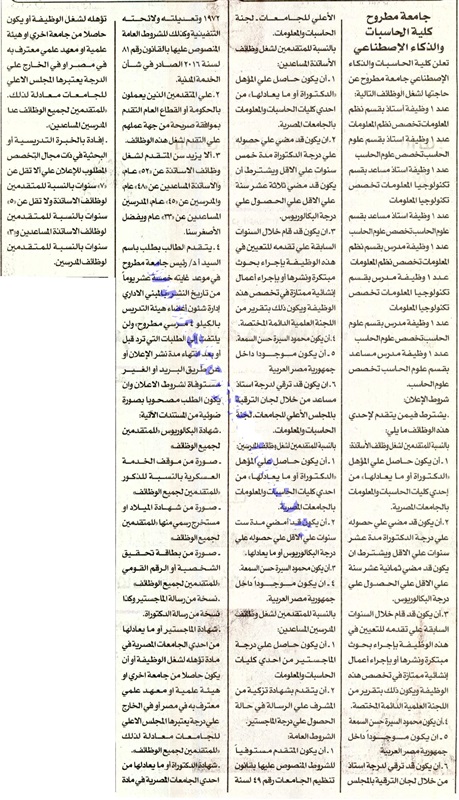 جامعة مطروح
كلية الحاسبات
والذكاء الإصطناعي
تعلن كلية الحاسبات والذكاء
الإصطناعي جامعة مطروح عن
حاجتها لشغل الوظائف التالية:
عدد ١ وظيفة أستاذ بقسم نظم
المعلومات تخصص نظم المعلومات
عدد ١ وظيفة أستاذ بقسم علوم
الحاسب تخصص علوم الحاسب
عدد ١ وظيفة أستاذ مساعد بقسم
تكنولوجيا المعلومات تخصص
تكنولوجيا المعلومات
عدد ١ وظيفة أستاذ مساعد بقسم علوم
الحاسب تخصص علوم الحاسب
عدد ١ وظيفة مدرس بقسم نظم
المعلومات تخصص نظم المعلومات
عدد ١ وظيفة مدرس بقسم
تكنولوجيا المعلومات تخصص
تكنولوجيا المعلومات
عدد ١ وظيفة مدرس بقسم علوم
الحاسب تخصص علوم الحاسب
عدد ١ وظيفة مدرس مساعد
بقسم علوم الحاسب تخصص
علوم الحاسب.
شروط الإعلان:
.يشترط فيمن يتقدم لإحدي
هذه الوظائف ما يلي:
بالنسبة للمتقدمين لشغل وظائف الأساتذة
١. أن يكون حاصل علي المؤهل
«الدكتوراة أو ما يعادلها» من
إحدي كليات الحاسبات والمعلومات
بالجامعات المصرية.
٢. أن يكون قد مضي علي حصوله
علي درجة الدكتوراة مدة عشر
سنوات علي الأقل ويشترط أن
يكون قد مضي ثمانية عشر سنة
علي الأقل الحصول علي
درجة البكالوريوس.
٣. أن يكون قد قام خلال السنوات
السابقة علي تقدمه للتعيين في
هذه الوظيفة بإجراء بحوث
مبتكرة ونشرها أو بإجراء أعمال
إنشائية ممتازة في تخصص هذه
الوظيفة ويكون ذلك بتقرير من
اللجنة العلمية الدائمة المختصة.
٤. أن يكون محمود السيرة حسن السمعة
٥. أن يكون موجوداً داخل
جمهورية مصر العربية
٦. أن يكون قد ترقي لدرجة أستاذ
من خلال لجان الترقية بالمجلس
الأعلي للجامعات. لجنة
الحاسبات والمعلومات.
بالنسبة للمتقدمين لشغل وظائف
الأساتذة المساعدين:
١. أن يكون حاصل علي المؤهل
«الدكتوراة أو ما يعادلها» من
إحدي كليات الحاسبات والمعلومات
بالجامعات المصرية.
٢. أن يكون قد مضي علي حصوله
علي درجة الدكتوراة مدة خمس
سنوات علي الأقل ويشترط أن
يكون قد مضي ثلاثة عشر سنة
علي الأقل علي الحصول علي
درجة البكالوريوس.
٣. أن قام خلال السنوات
السابقة علي تقدمه للتعيين في
هذه الوظيفة بإجراء بحوث
مبتكرة ونشرها أو بإجراء أعمال
إنشائية ممتازة في تخصص هذه
الوظيفة ويكون ذلك بتقرير من
اللجنة العلمية الدائمة المختصة.
٤. أن يكون محمود السيرة حسن السمعة.
٥. أن يكون موجوداً داخل
جمهورية مصر العربية
٦. أن يكون قد ترقي لدرجة أستاذ
مساعد من خلال لجان الترقية
بالمجلس الأعلي للجامعات. لجنة
الحاسبات والمعلومات.
بالنسبة للمتقدمين لشغل وظائف المدرسين:
١. أن يكون حاصل علي المؤهل
«الدكتوراة أو ما يعادلها» من
إحدي كليات الحاسبات والمعلومات
بالجامعات المصرية.
٢. أن يكون قد أمضي مدة ست
سنوات علي الأقل علي حصوله علي
درجة البكالوريوس أو ما يعادلها.
٣. أن يكون محمود السيرة حسن السمعة.
٤. أن يكون موجوداً داخل
جمهورية مصر العربية.
بالنسبة للمتقدمين لشغل وظائف
المدرسين المساعدين:
١. أن يكون حاصل علي درجة
الماجستير من إحدي كليات
الحاسبات والمعلومات
٢. أن يتقدم بشهادة تزكية من
المشرف علي الرسالة في حالة
الحصول علي درجة الماجستير.
الشروط العامة:
١. أن يكون المتقدم مستوفياً
للشروط المنصوص عليها بقانون
تنظيم الجامعات رقم ٤٩ لسنة
١٩٧٢ وتعديلاته ولائحته
التنفيذية وكذلك للشروط العامة
المنصوص عليها بالقانون رقم ٨١
لسنة ٢٠١٦ الصادر في شأن
الخدمة المدنية.
٢. علي المتقدمين الذين يعملون
بالحكومة أو القطاع العام التقدم
بموافقة صريحة من جهة عملهم
علي التقدم لشغل هذه الوظائف.
٣. ألا يزيد سن المتقدم لشغل
وظائف الأساتذة عن «٥٢» عام
والأساتذة المساعدين عن «٤٨» عام
والمدرسين عن «٤٥» عام المدرسين
المساعدين عن «٣٣» عام ويفضل
الأصغر سنا.
٤. يتقدم الطالب بطلب باسم
السيد أ.د/ رئيس جامعة مطروح
في موعد غايته خمسة عشر يوماً
من تاريخ النشر بالمبني الاداري
إدارة شئون أعضاء هيئة التدريس
بالكيلو ٤ مرسي مطروح، ولن
يلتفت إلي الطلبات التي ترد قبل
أو بعد انتهاء مدة نشر الإعلان أو
عن طريق البريد أو الغير
مستوفاة لشروط الاعلان وأن
يكون الطلب مصحوبا بصورة
ضوئية من المستندات الآتية:
.شهادة البكالوريوس «للمتقدمين
لجميع الوظائف».
.صورة من موقف الخدمة
العسكرية بالنسبة للذكور
«للمتقدمين لجميع الوظائف».
.صورة من شهادة الميلاد أو
مستخرج رسمي منها «للمتقدمين
لجميع الوظائف».
.صورة من بطاقة تحقيق
الشخصية أو الرقم القومي
«للمتقدمين لجميع الوظائف».
.نسخة من رسالة الماجستير وكذا
نسخة من رسالة الدكتوراة.
.شهادة الماجستير أو ما يعادلها
من احدي الجامعات المصرية في
مادة تؤهله لشغل الوظيفة أو أن
يكون حاصلا من جامعة اخري أو
هيئة علمية أو معهد علمي
معترف به في مصر أو في الخارج
علي درجة يعتبرها المجلس الاعلي
للجامعات معادلة لذلك
«للمتقدمين لجميع الوظائف».
.شهادة الدكتوراة أو ما يعادلها من
احدي الجامعات المصرية في مادة
تؤهله لشغل الوظيفة أو يكون
حاصلا من جامعة اخري أو هيئة
علمية أو معهد علمي معترف به
في مصر أو في الخارج علي
الدرجة يعتبرها المجلس الاعلي
للجامعات معادلة لذلك.
«للمتقدمين لجميع الوظائف عدا
المدرسين المساعدين».
.إفادة بالخبرة التدريسية أو
البحثية في ذات مجال التخصص
المطلوب للإعلان علي ألا تقل عن
«٧» سنوات بالنسبة للمتقدمين
لوظائف الاساتذة ولا تقل عن «٥»
سنوات بالنسبة للمتقدمين
لوظائف الاساتذة المساعدين و«٣»
لوظائف المدرسين.